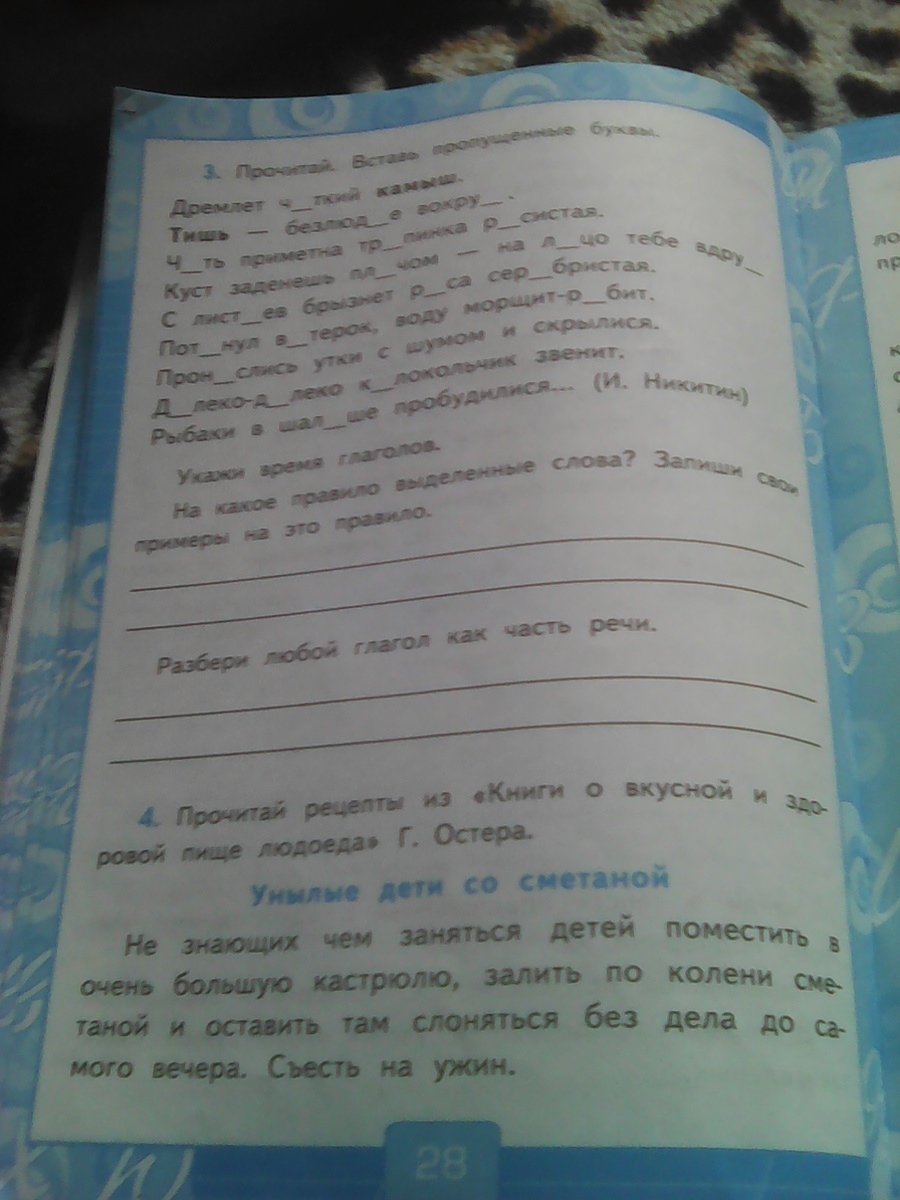 3. Прочитай. Вставь пропущенные буквы.
Дремлет ч_ткий камыш.
Тишь — безлюд_е вокру_ .
Ч_ть приметна тр_пинка р_систая.
Куст заденешь пл_чом — на л_цо тебе вдру_
С лист_ев брызнет р_са сер_бристая.
Пот_нул в_терок, воду морщит-р_бит.
Прон_слись утки с шумом и скрылися.
Д_леко-д_леко к_локольчик звенит.
Рыбаки в шал_ше пробудилися... (И. Никитин)
Укажи время глаголов.
На какое правило выделенные слова? Запиши свои
примеры на это правило.
Разбери любой глагол как часть речи.
4. Прочитай рецепты из «Книги о вкусной и здо-
ровой пище людоеда» Г. Остера.
Унылые дети со сметаной
Не знающих чем заняться детей поместить в
очень большую кастрюлю, залить по колени сме-
таной и оставить там слоняться без дела до са-
мого вечера. Съесть на ужин.
28